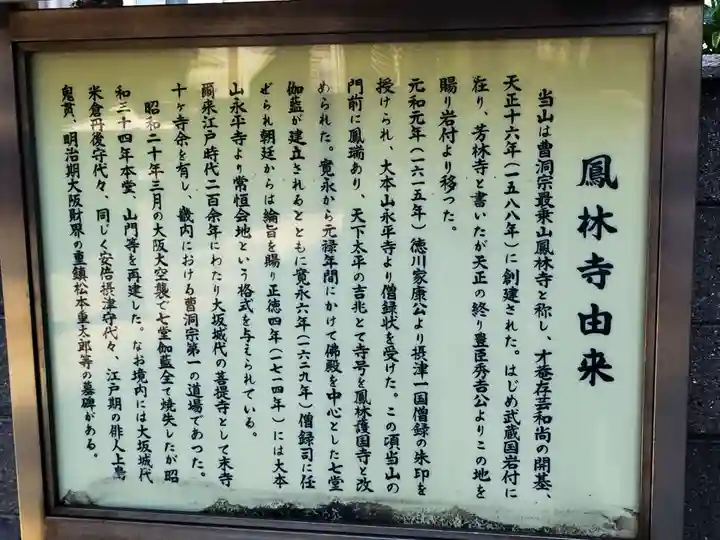 鳳林寺由来
当山は曹洞宗最乗山鳳林寺と称し、才菴存芸和尚の開基、
天正十六年（一五八八年）に創建された。はじめ武蔵国岩付に
在り、芳林寺と書いたが天正の終り豊臣秀吉公よりこの地を
賜り岩付より移つた。
元和元年（一六一五年）徳川家康公より摂津一国僧録の朱印を
授けられ、大本山永平寺より僧録状を受けた。この頃当山の
門前に鳳瑞あり、天下太平の吉兆とて寺号を鳳林護国寺と改
められた。寛永から元禄年間にかけて佛殿を中心とした七堂
伽藍が建立されるとともに寛永六年（一六二九年）僧録司に任
ぜられ朝廷からは綸旨を賜り正徳四年（一七一四年）には大本
山永平寺より常恒会地という格式を与えられている。
爾来江戸時代二百余年にわたり大坂城代の菩提寺として末寺
十ヶ寺余を有し、畿内における曹洞宗第一の道場であつた。
昭和二十年三月の大阪大空襲で七堂伽藍全て焼失したが昭
和三十四年本堂、山門等を再建した。なお境内には大坂城代
米倉丹後守代々、同じく安倍摂津守代々、江戸期の俳人上島
鬼貫、明治期大阪財界の重鎮松本重太郎等の墓碑がある。